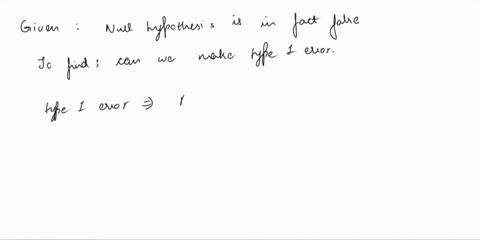 Given : Null hypothesis is in fact false
To find : can we make type I error.
type I error ⇒